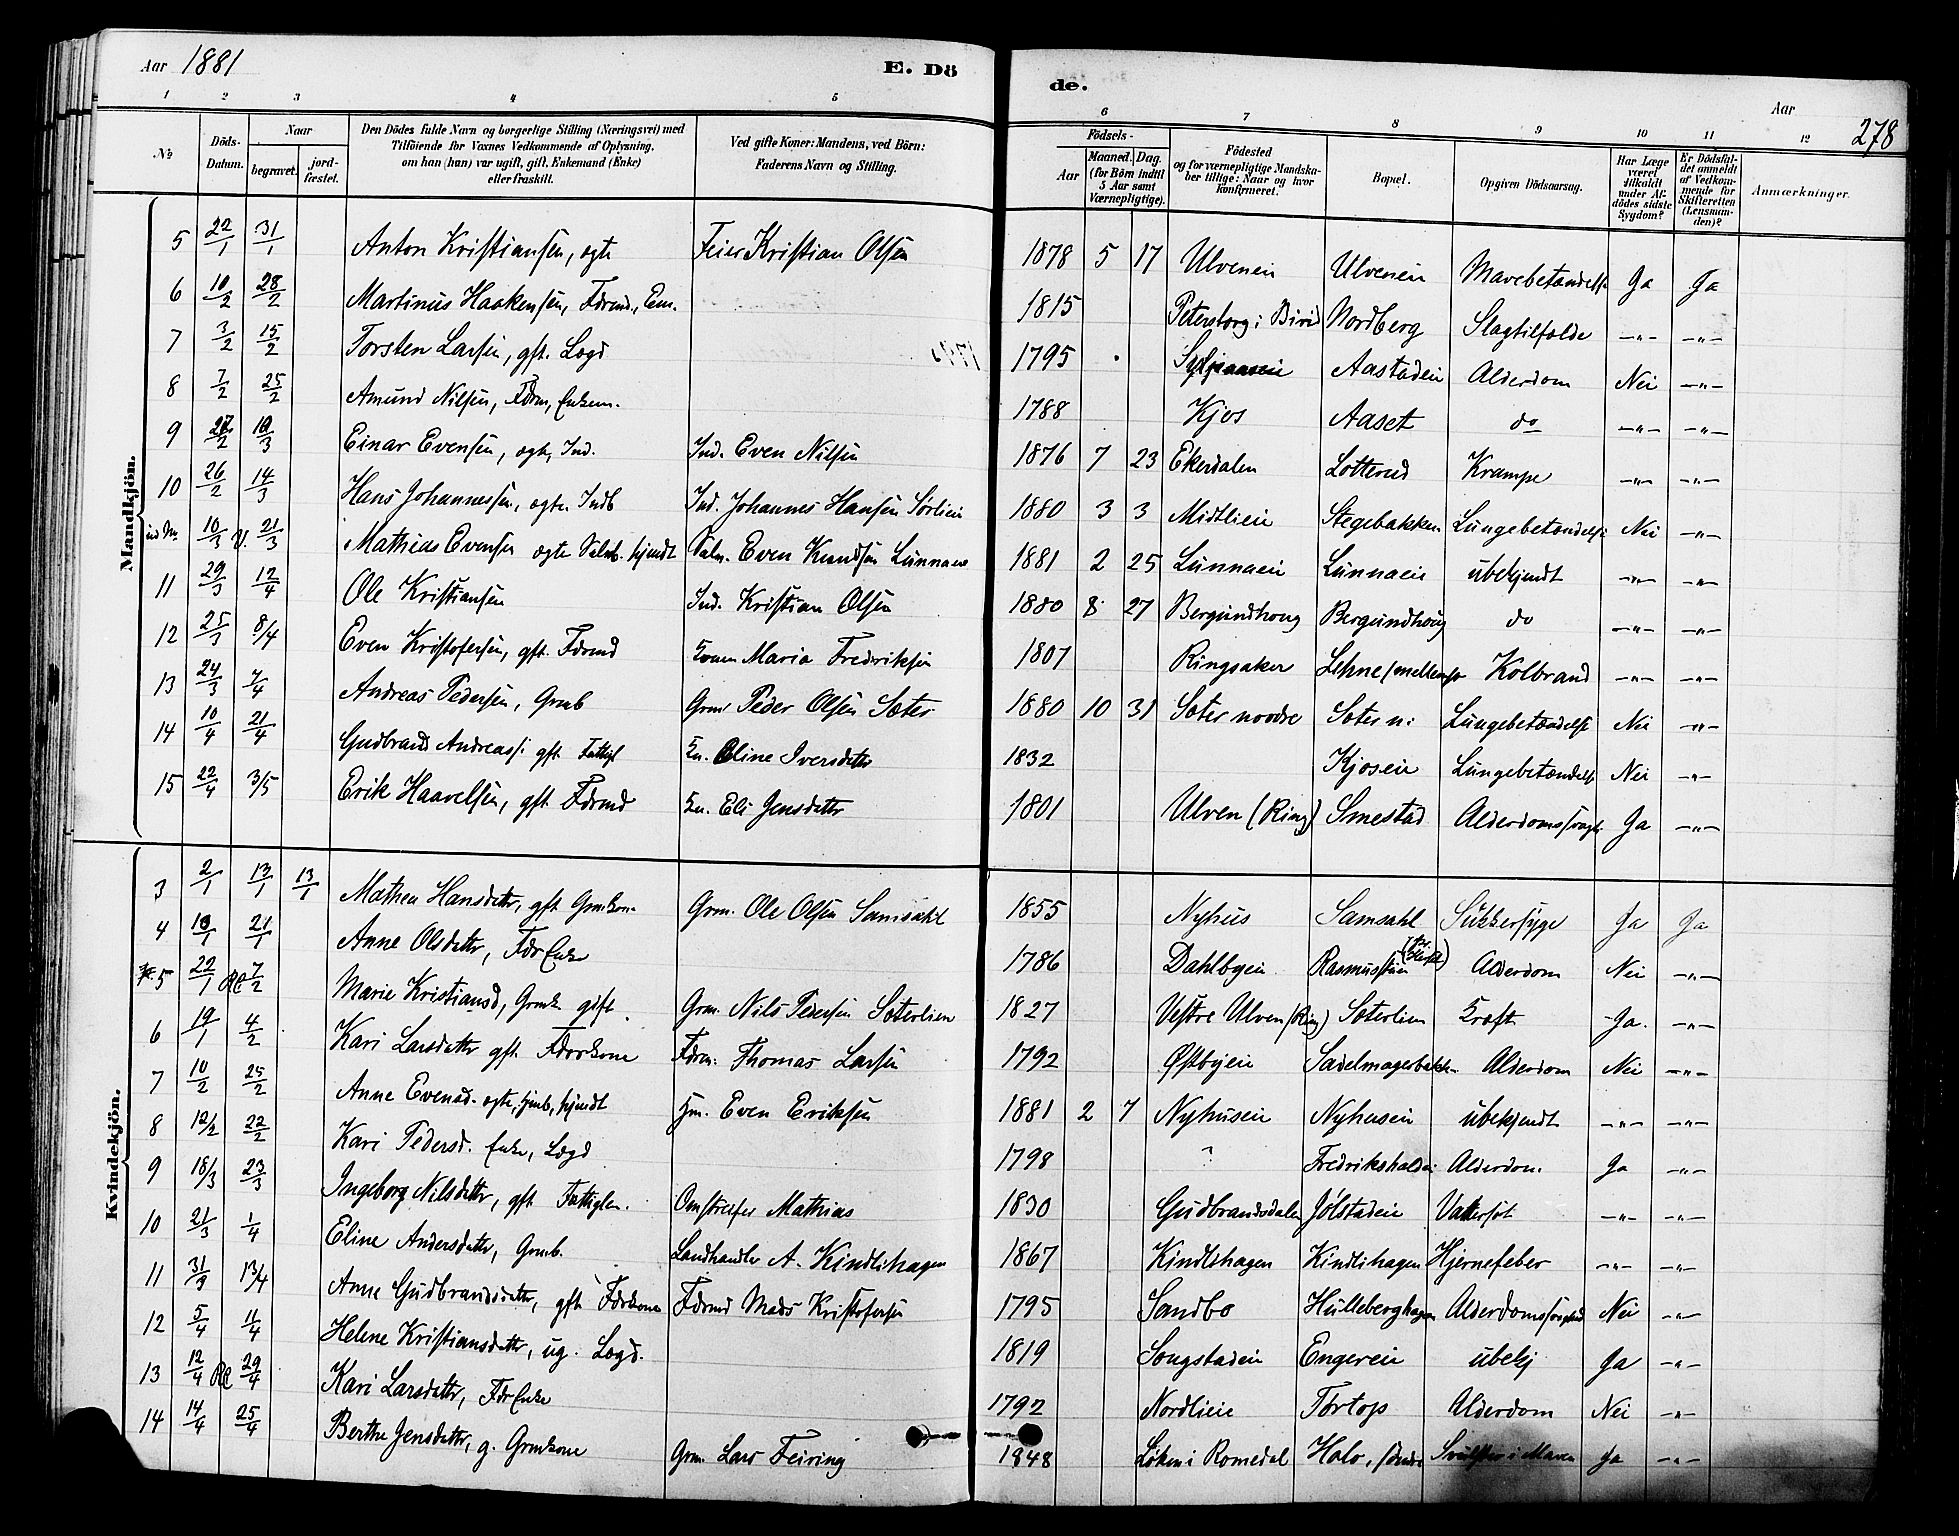 Aar 1881 E. Dö
de. Aar 278
1 2 3 4 5 6 7 8 9 10 11 12
No Döds-Datum. Naar begravet. jordfæstet. Den Dödes fulde Navn og borgerlige Stilling (Næringsvei) med Tilföiende for Voxnes Vedkommende af Oplysning, om han (hun) var ugift, gift, Enkemand (Enke) eller fraskilt. Ved gifte Koner: Mandens, ved Börn: Faderens Navn og Stilling. Födsels- Aar Maaned. Dag. (for Börn indtil 5 Aar samt Værnepligtige). Födested og for værnepligtige Mandskaber tillige: Naar og hvor konfirmeret. Bopæl. Opgiven Dödsaarsag. Har Læge været tilkaldt under Afdödes sidste Sygdom? Er Dödsfaldet anmeldt af Vedkommende for Skifteretten (Lensmanden)? Anmærkninger.
Mandkjön.
5 22/1 31/1 Anton Kristiansen, ægte Feier Kristian Olsen 1878 5 17 Ulveneie Ulveneie Mavebetændelse Ja Ja
6 10/2 28/2 Martinus Haakensen, Fdrmd., Em. 1815 Petersborg i Birid Nordberg Slagtilfælde -"- -"-
7 3/2 15/2 Torsten Larsen, gft. Lægd 1795 Aastadeie Alderdom Nei -"-
8 7/2 25/2 Amund Nilsen, Fdrm, Enkem. 1788 Kjos Aaset do -"- -"-
9 /2 /3 Einar Evensen, ægte, Ind. Ind. Even Nilsen 1876 7 23 Ekerdalen Lotterud Krampe -"- -"-
10 26/2 14/3 Hans Johannessen, ægte, Indb Ind. Johannes Hansen Sørlieie 1880 3 3 Midtlieie Stegebakken Lungebetændelse Nei -"-
ud No 10/3 21/3 Mathias Evensen ægte hjmdt Even Knudsen Lunnaeie 1881 2 25 Lunnaeie Lunnaeie ubekjendt -"- -"-
11 29/3 12/4 Ole Kristiansen Ind. Kristian Olsen 1880 8 27 Bergundhoug Bergundhoug do -"- -"-
12 25/3 8/4 Even Kristofersen, gft. Fdrmd Konen Maria Fredriksen 1807 Ringsaker Lehne Kolbrand -"- -"-
13 24/3 4/4 Andreas Pedersen, Grmb Grm Peder Olsen Sæter 1880 10 31 Sæter nordre Sæter n: Lungebetændelse Nei -"-
14 10/4 21/4 Gudbrand Andreass. gft. Fattigl Kn. Eline Iversdatter 1832 Kjoseie Lungebetændelse Nei -"-
15 22/4 3/5 Erik Haavelsen, gft. Fdrmd Kn. Eli Jensdatter 1801 Ulven (Ring) Smestad Alderdomssvagh. Ja -"-
Kvindekjön.
3 2/1 13/1 13/1 Mathea Hansdatter, gft Grmkone Grm. Ole Olsen Samsahl 1855 Nyhus Samsahl Sukkersyge Ja Ja
4 10/1 21/1 Anne Olsdatter, Fdr Enke 1786 Dahlbyeie Rasmusstuen Alderdom Nei -"-
5 22/1 7/2 Marie Kristiansd, Grmk. gift. Grm. Nils Pedersen Sæterlien 1827 Vestre Ulven (Ring) Sæterlien Kræft Ja. -"-
6 19/1 4/2 Kari Larsdatter gft. Fdrkone Fdrm. Thomas Larsen 1792 Østbyeie Sadelmagerbakk. Alderdom Nei -"-
7 10/2 25/2 Anne Evensd. ægte, hjmb, hjmdt Hm. Even Eriksen 1881 2 7 Nyhuseie Nyhuseie ubekjendt -"- -"-
8 12/2 22/2 Kari Pedersd. Enke, Lægd 1798 " Fredrikshaldeie Alderdom. Ja -"-
9 18/3 23/3 Ingeborg Nilsdatter, gft. Fattiglm. Omstreifer Mathias 1830 Gudbrandsdalen Jølstadeie Vatersot -"- -"-
10 21/3 1/4 Eline Andersdatter, Grmb. Landhandler A. Kindlihagen 1867 Kindlihagen Kindlihagen Hjernefeber -"- -"-
11 31/3 13/4 Anne Gudbrandsdatter, gft Fdrkone Fdrmd Mads Kristofersen 1795 Sandbo Hulleberghagen Alderdomssvaghed Nei -"-
12 5/4 11/4 Helene Kristiansdatter, ug. Lægd. 1819 Songstadeie Engereie ubekj Ja -"-
13 12/4 29/4 Kari Larsdatter, Fdr Enke 1792 Nordlieie Tørtop Alderdom Nei -"-
14 14/4 25/4 Berthe Jensdatter, g. Grmkone Grm. Lars Feiring 1848 Løken i Romedal Holo, søndre Svulster i Maven Ja -"-